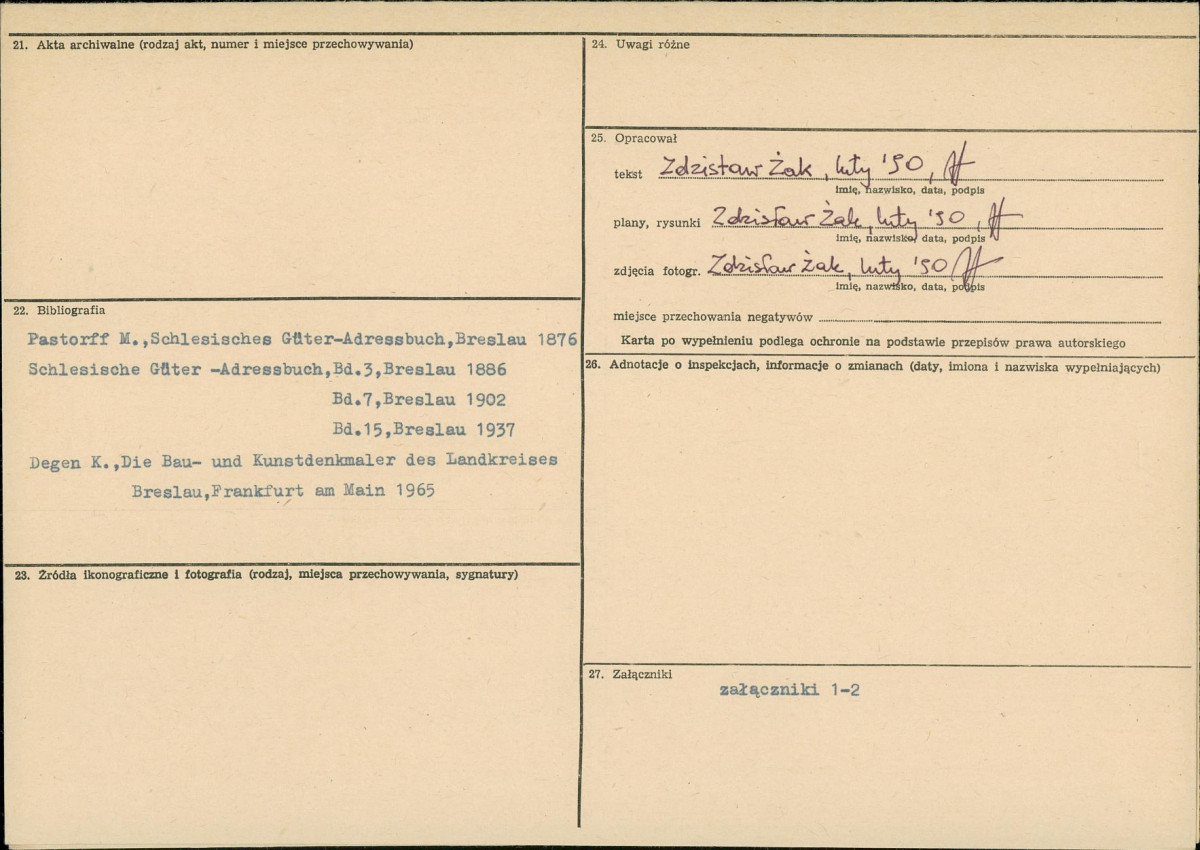 21. Akta archiwalne (rodzaj akt, numer i miejsce przechowywania)
22. Bibliografia
Pastorff M.,Schlesisches Güter-Adressbuch,Breslau 1876
Schlesische Güter -Adressbuch,Bd.3,Breslau 1886
Bd.7,Breslau 1902
Bd.15,Breslau 1937
Degen K.,Die Bau- und Kunstdenkmaler des Landkreises
Breslau,Frankfurt am Main 1965
23. Źródła ikonograficzne i fotografia (rodzaj, miejsca przechowywania, sygnatury)
24. Uwagi różne
25. Opracował
tekst Zdzisław Żak, luty '90,
imię, nazwisko, data, podpis
plany, rysunki Zdzisław Żak, luty '90,
imię, nazwisko, data, podpis
zdjęcia fotogr. Zdzisław Żak, luty '90
imię, nazwisko, data, podpis
miejsce przechowania negatywów
Karta po wypełnieniu podlega ochronie na podstawie przepisów prawa autorskiego
26. Adnotacje o inspekcjach, informacje o zmianach (daty, imiona i nazwiska wypełniających)
27. Załączniki
załączniki 1-2